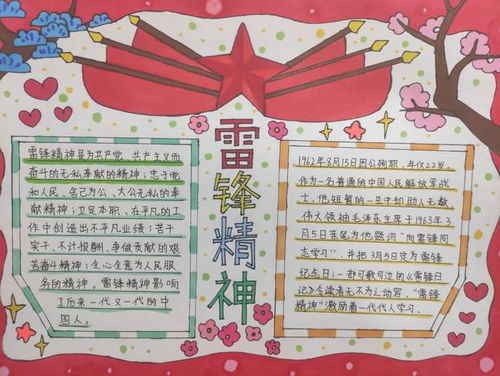 雷锋精神
雷锋精神是为共产党、共产主义而
奋斗的无私奉献的精神；忠于党
和人民、舍己为公、大公无私的奉
献精神；立足本职、在平凡的工
作中创造出不平凡业绩；苦干
实干、不计报酬、争做贡献的艰
苦奋斗精神；全心全意为人民服
务的精神，雷锋精神影响
了后来一代又一代的中
国人。
1962年8月15日因公殉职，年仅22岁。
作为一名普通的中国人民解放军战
士，他短暂的一生中却助人无数。
伟大领袖毛泽东主席于1963年3
月5日亲笔为他题词“向雷锋同
志学习”，并把3月5日定为雷锋
纪念日；一部可歌可泣的《雷锋日
记》令读者无不为之动容，“雷锋
精神”激励着一代代人学习。